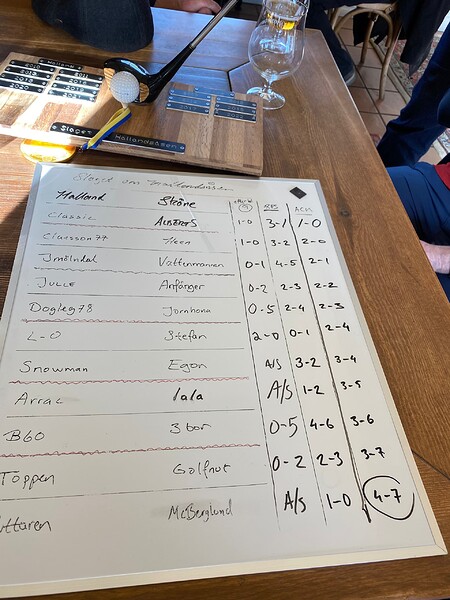 Halland
2018 2011
2019
2020
2021
Slaget
Hallandsåsen
Slaget om Hallandsåsen
Halland Skåne
Classic Albert S 1-0 3-1 1-0
Claesson77 1-0 3-2 2-0
Smålndal Vattenmannen 0-1 4-5 2-1
Julle Anfänger 0-2 2-3 2-2
Dogleg78 Jornhona 0-5 2-4 2-3
L-O Stefan 2-0 0-1 2-4
Snowman Egon A/S 3-2 3-4
Arrac lala A/S 1-2 3-5
B60 3 bor 0-5 4-6 3-6
Toppen Golfnut 0-2 2-3 3-7
McBerglund A/S 1-0 4-7